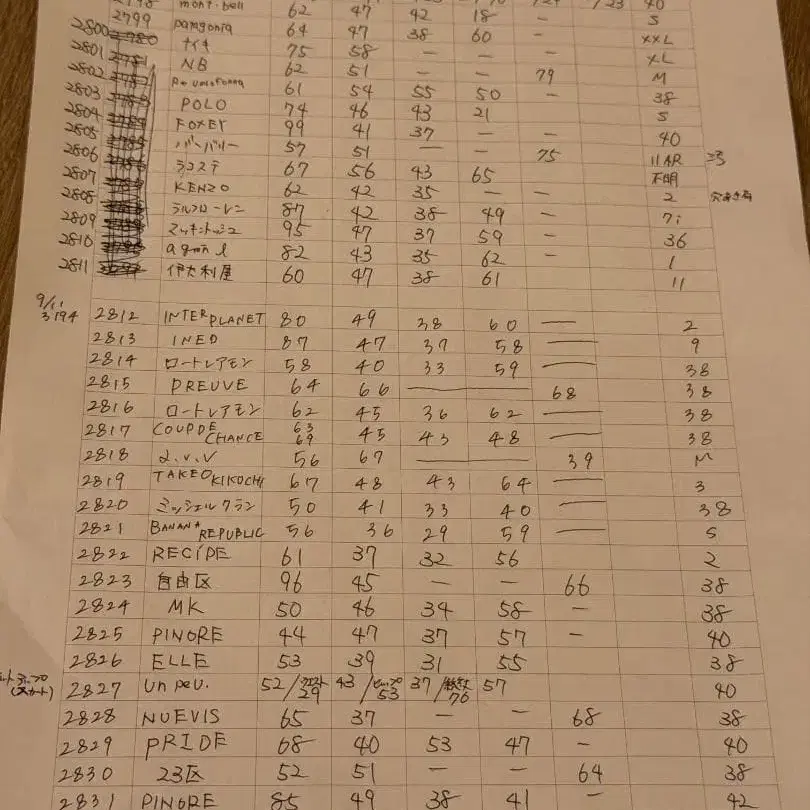 mont-bell 62 47 42 18 — 40
2799 patagonia 64 47 38 60 — S
2800 ナイキ 75 58 — — XXL
2801 NB 62 51 — — 79 XL
2802 61 54 55 50 — M
2803 POLO 74 46 43 21 38
2804 FOXEY 99 41 37 — — S
2805 バーバリー 57 51 — 75 40
2806 ラコステ 67 56 43 65 11AR
2807 KENZO 62 42 35 — — 不明
2808 ラルフローレン 87 42 38 49 — 2
2809 マッキントッシュ 95 47 37 59 — 7i
2810 agnis b 82 43 35 62 — 36
2811 伊太利屋 60 47 38 61 1
11
9/11
3194 2812 INTERPLANET 80 49 38 60 — 2
2813 INED 87 47 37 58 — 9
2814 ロートレアモン 58 40 33 59 — 38
2815 PREUVE 64 66 — 68 38
2816 ロートレアモン 62 45 36 62 — 38
2817 COUP DE CHANCE 63 69 45 43 48 — 38
2818 d.v.v 56 67 — 39 M
2819 TAKEO KIKOCHI 67 48 43 64 — 3
2820 ミッシェルクラン 50 41 33 40 — 38
2821 BANANA REPUBLIC 56 36 29 59 — S
2822 RECIPE 61 37 32 56 2
2823 自由区 96 45 — — 66 38
2824 MK 50 46 34 58 — 38
2825 PINORE 44 47 37 57 — 40
2826 ELLE 53 39 31 55 38
2827 un peu. 52/ウエスト29 43/ヒップ53 37/総丈76 57 40
2828 NUEVIS 65 37 — — 68 38
2829 PRIDE 68 40 53 47 — 40
2830 23区 52 51 — — 64 38
2831 PINORE 85 49 38 41 — 42